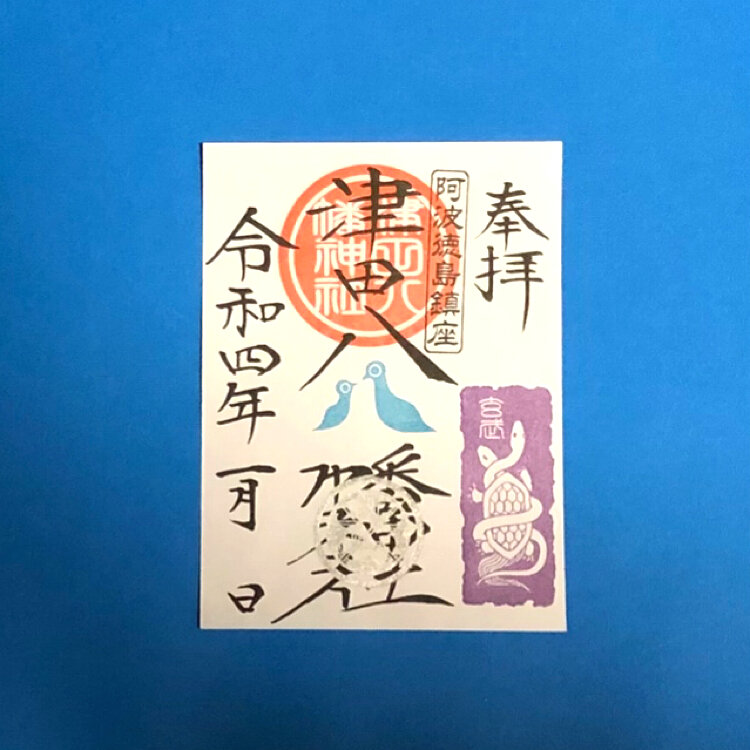 奉拝
阿波徳島鎮座
津田八
津田八幡神社
令和四年一月 日
玄武